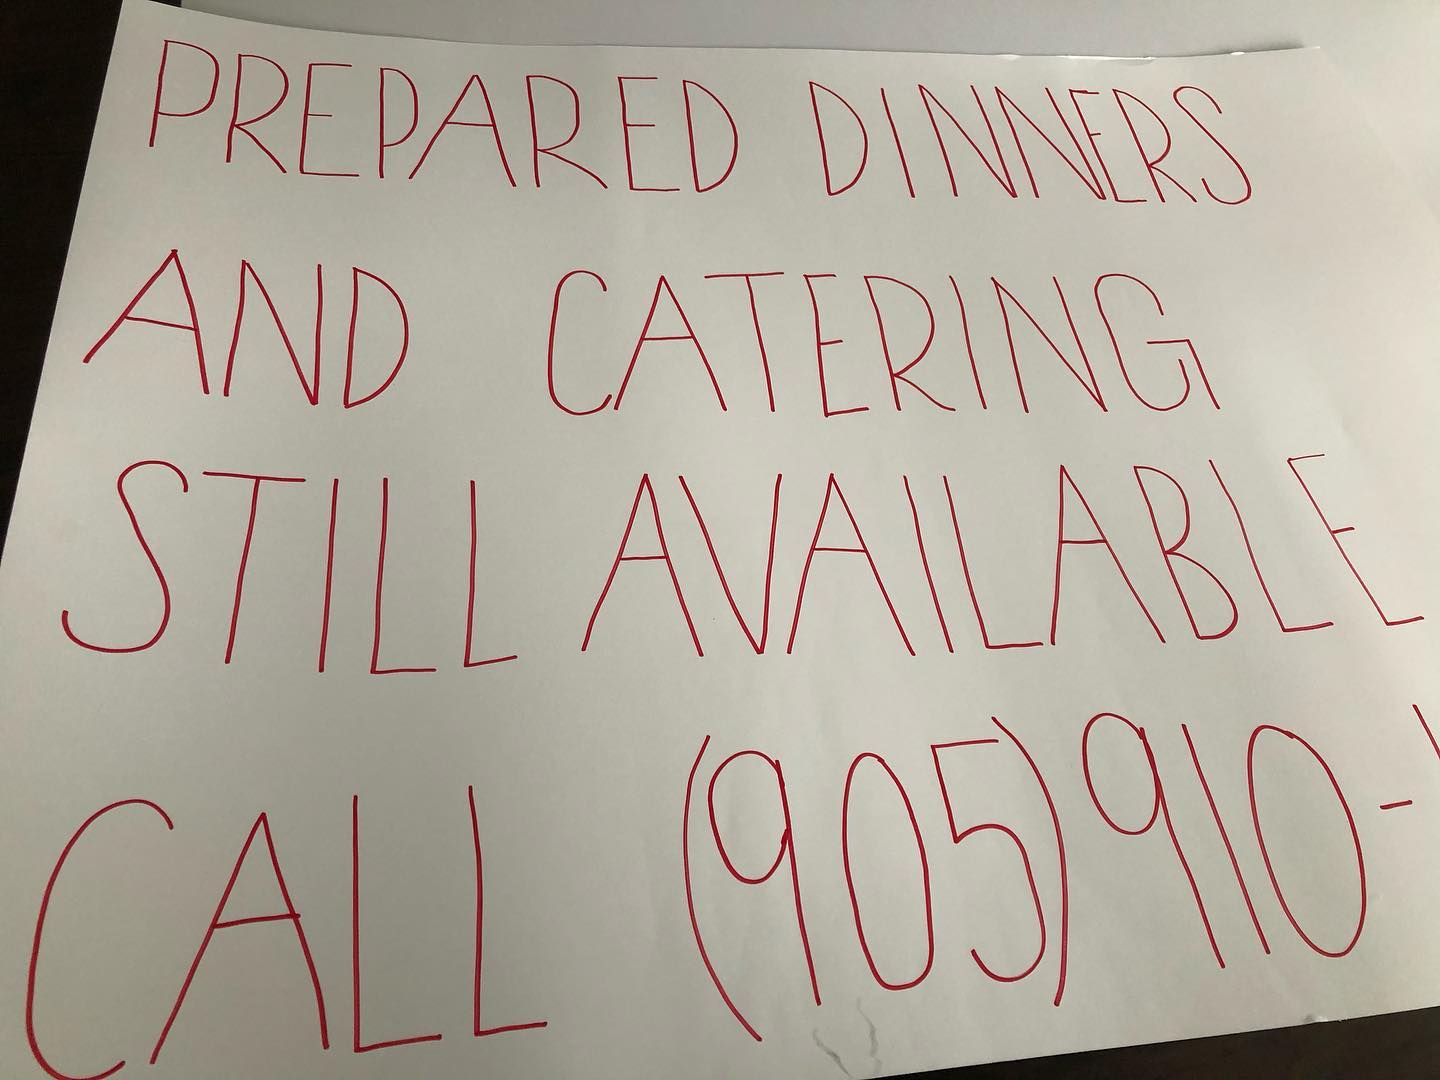 PREPARED DINNERS
AND CATERING
STILL AVAILABLE
CALL (905) 910-